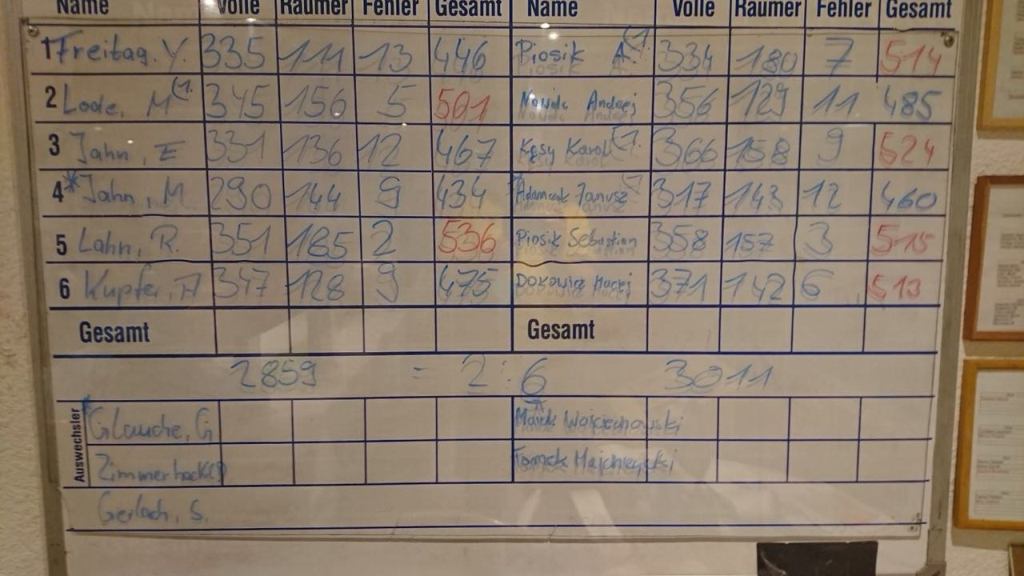 Name Volle Räumer Fehler Gesamt Name Volle Räumer Fehler Gesamt
1 Freitag. Y. 335 111 13 446 Piosik A. (1. 334 180 7 514
2 Lode, M (1. 345 156 5 501 Andrej 356 129 11 485
3 Jahn, E 331 136 12 467 Kęsy Karol (1. 366 158 9 524
4 * Jahn, M 290 144 9 434 * Adamczak Janusz 317 143 12 460
5 Lahn, R. 351 185 2 536 Piosik Sebastian 358 157 3 515
6 Kupfer, A 347 128 9 475 Maciej 371 142 6 513
Gesamt Gesamt
2859 = 2:6 3011
Auswechsler
* Glauche, G Marek Wojciechowski
Zimmerhackl Tomek
Gerlach, S.